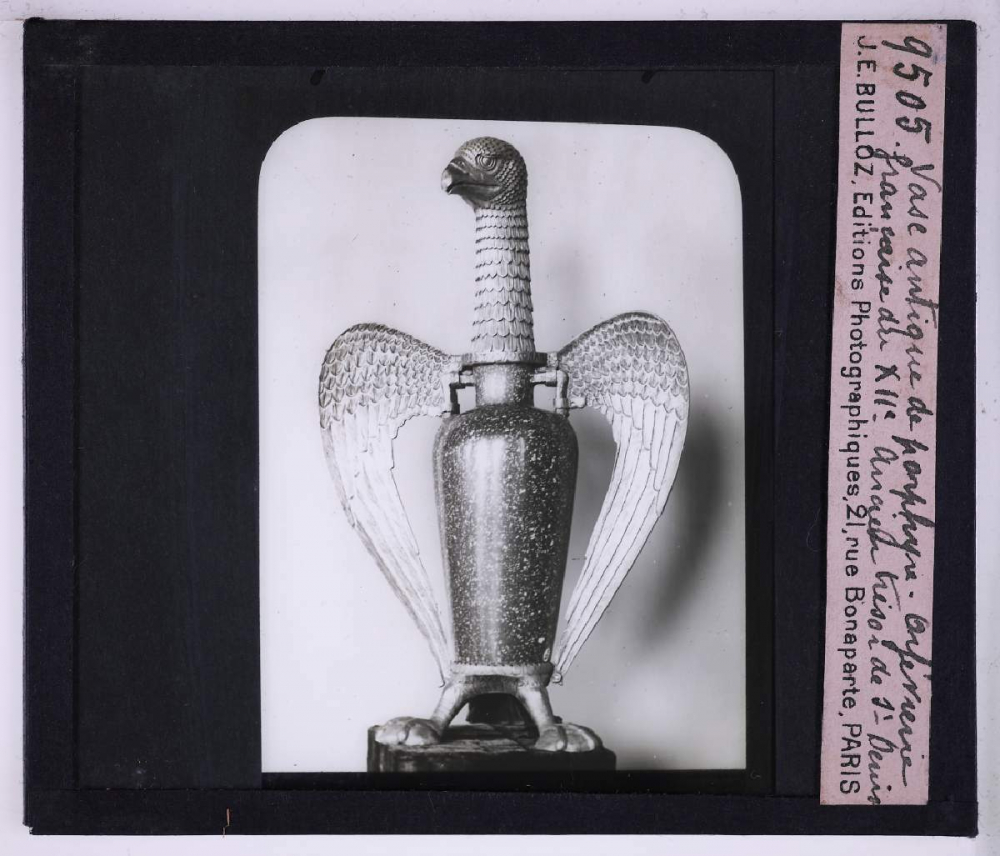 9505. Vase antique de porphyre. Orfévrerie
française du XIIe Ancien trésor de St Denis
J.E. BULLOZ, Editions Photographiques, 21, rue Bonaparte, PARIS